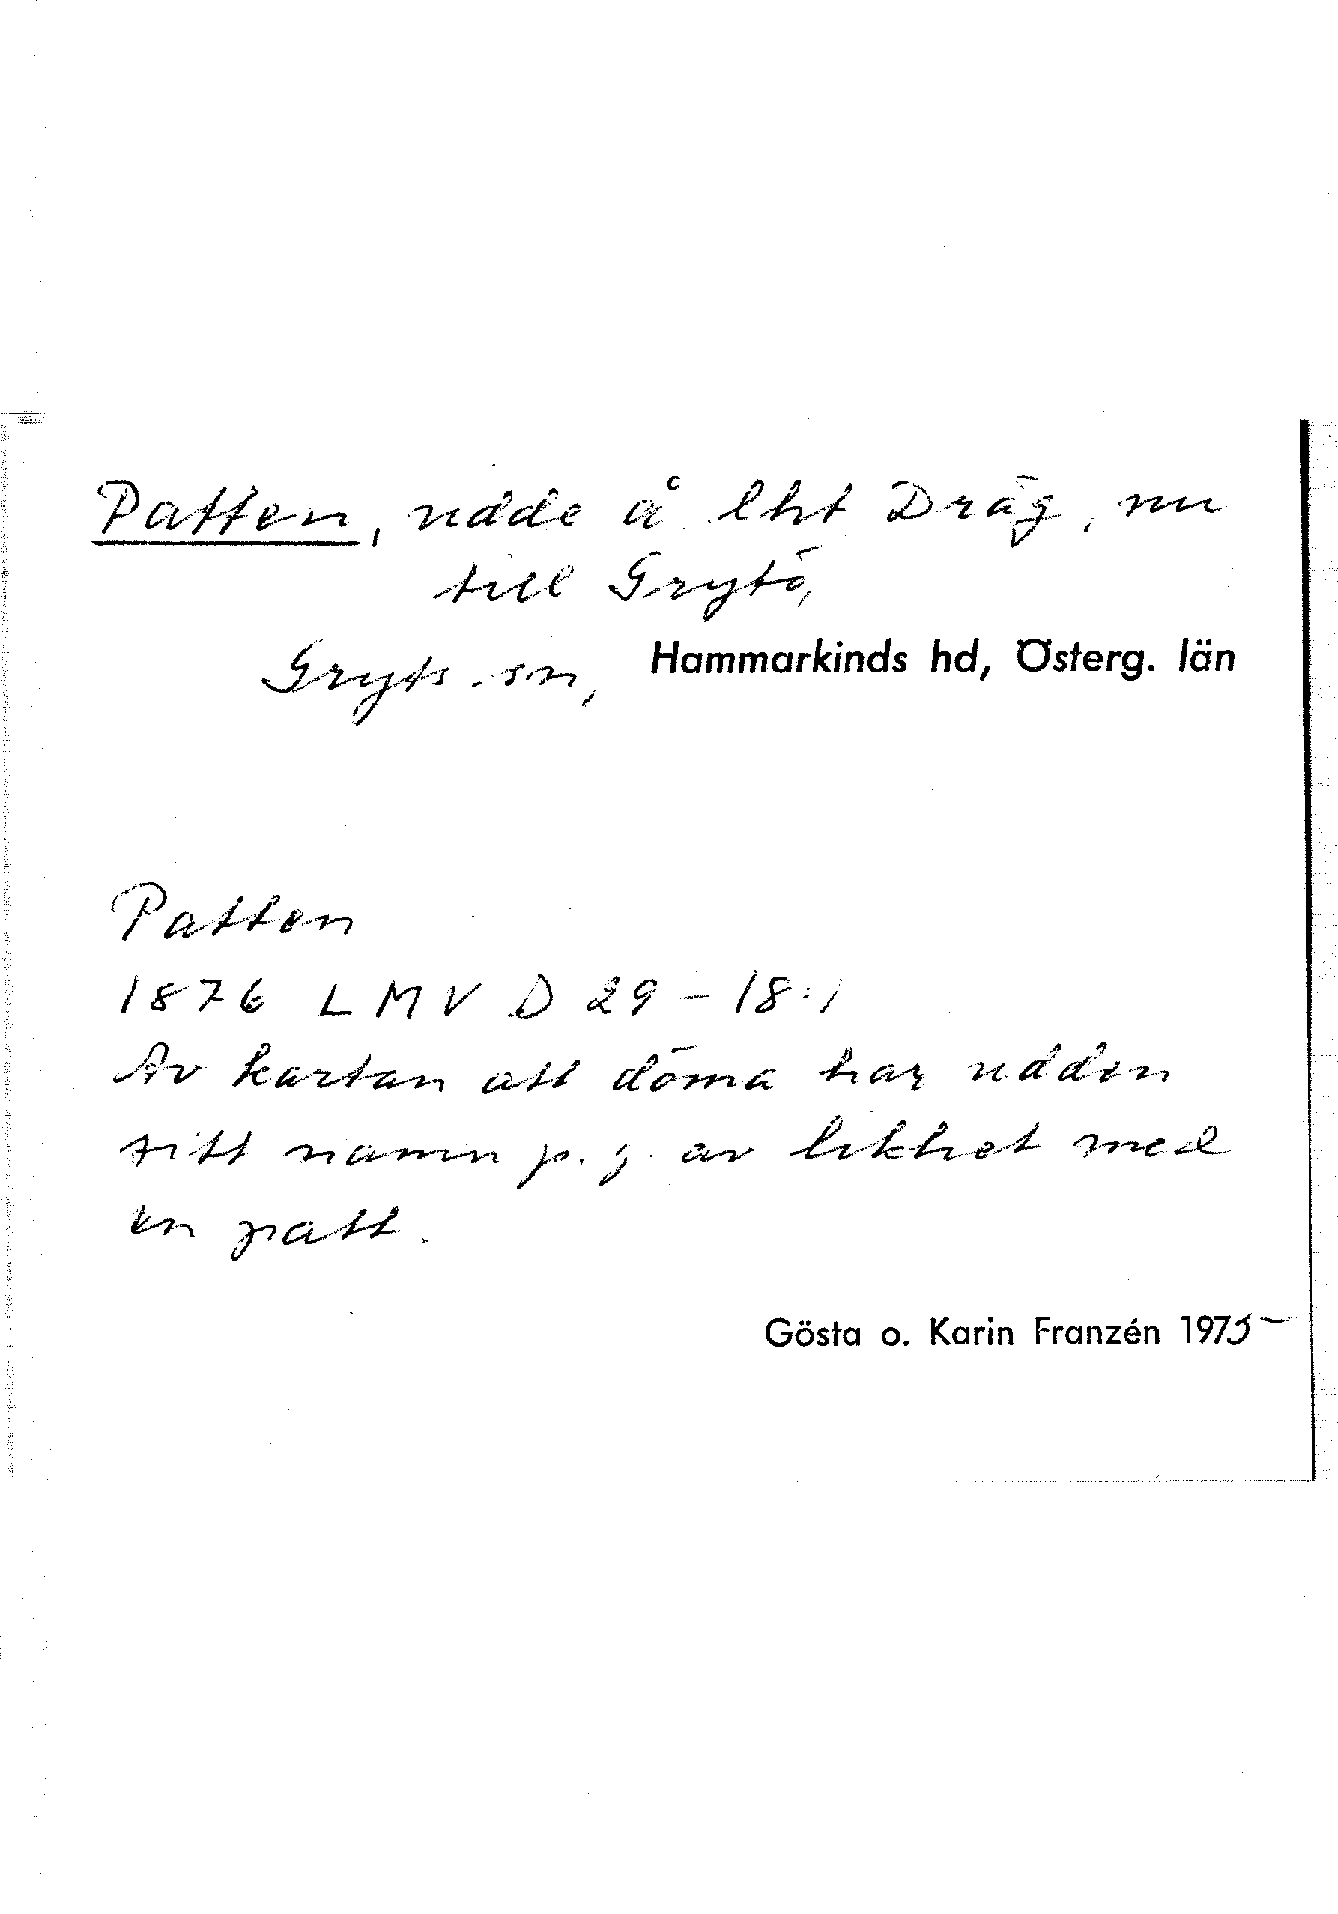 Patten, udde å lht Dräg, nu
till Grytö,
Gryts sn, Hammarkinds hd, Österg. län
Patten
1876 LMV D 29-18:1
Av kartan att döma har udden
sitt namn p.g. av likhet med
en patt.
Gösta o. Karin Franzén 1975